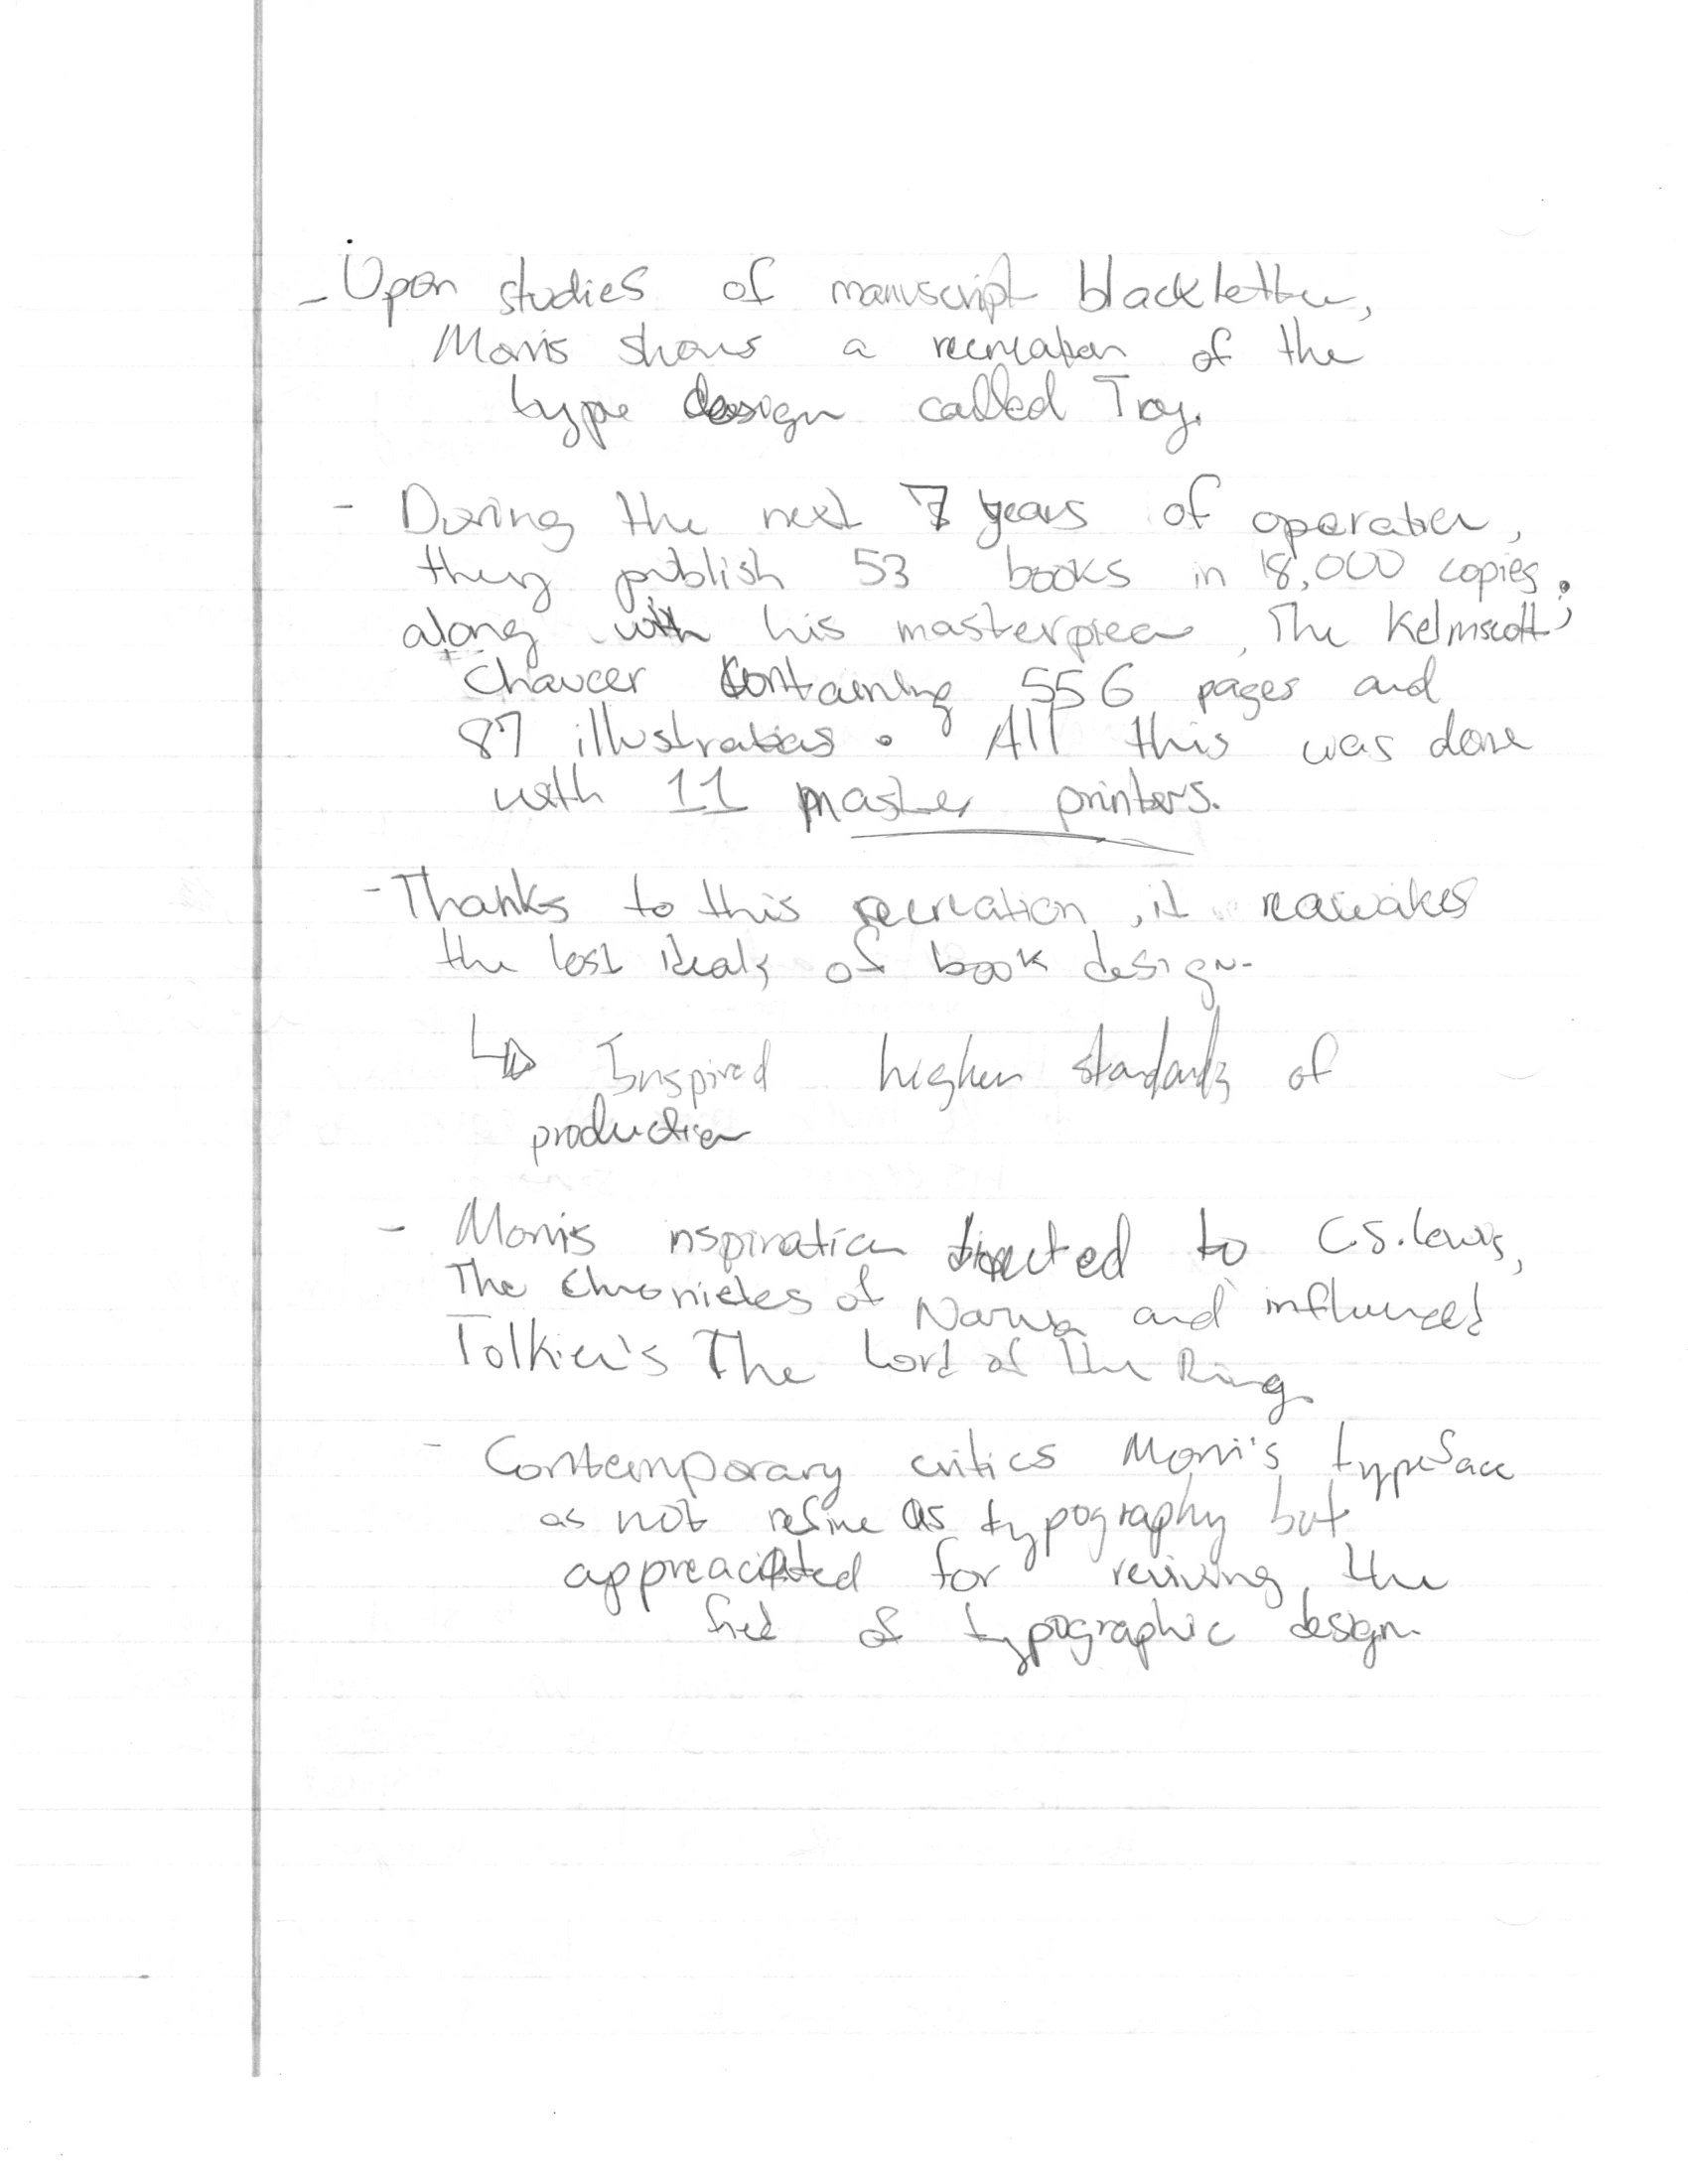 - Upon studies of manuscript blackletter,
Morris shows a recreation of the
type design called Troy.
- During the next 7 years of operation,
they publish 53 books in 18,000 copies.
along with his masterpiece, The Kelmscott;
Chaucer containing 556 pages and
87 illustrations. All this was done
with 11 master printers.
- Thanks to this recreation, it reawakes
the lost ideals of book design.
↳ Inspired higher standards of
production
- Morris nspiration directed to C.S. Lewis,
The Chronicles of Narnia and influenced
Tolkien's The Lord of The Ring.
- Contemporary critics Morri's typeface
as not refine as typography but
appreaciated for reviving the
field of typographic design.